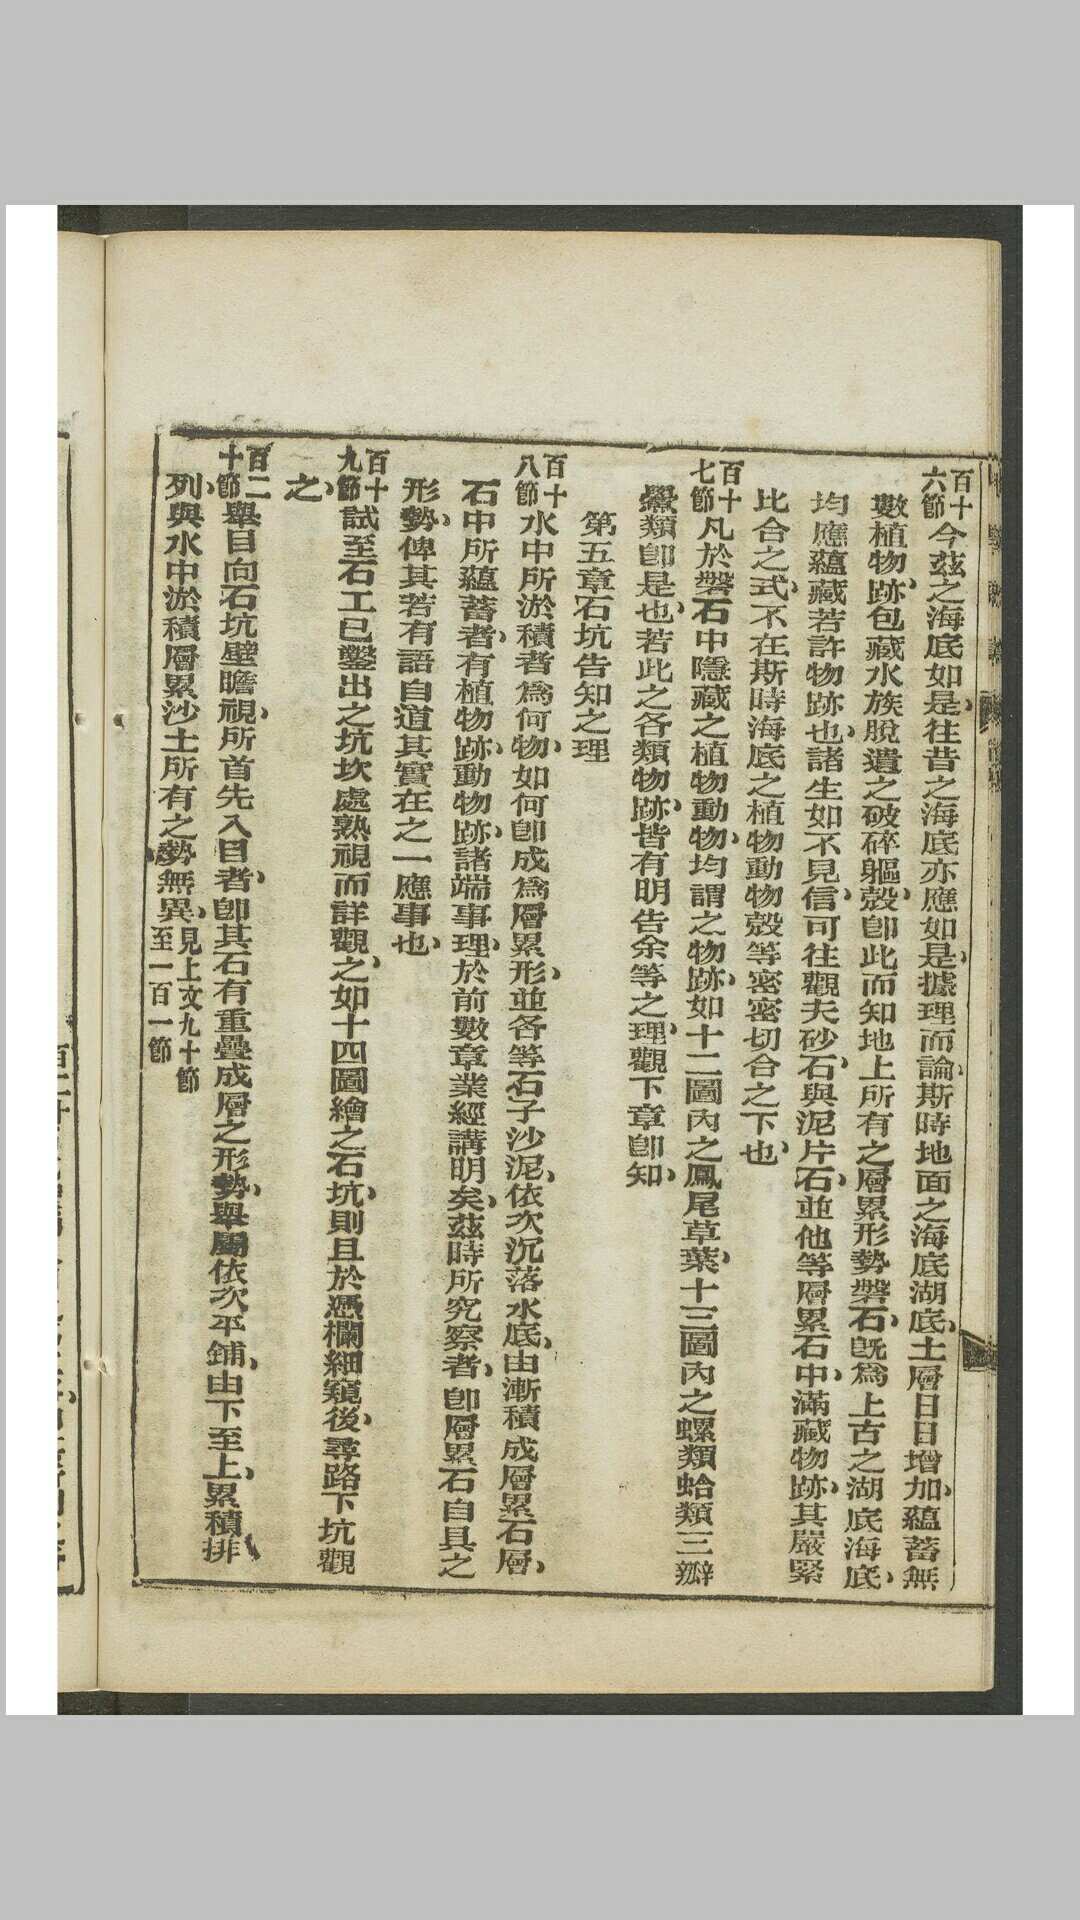 百十六節今茲之海底如是、往昔之海底亦應如是、據理而論、斯時地面之海底湖底、土層日日增加、蘊蓄無
數植物跡、包藏水族脫遺之破碎軀殼、卽此而知地上所有之層累形勢磐石、旣爲上古之湖底海底、
均應蘊藏若許物跡也、諸生如不見信、可往觀夫砂石、與泥片石、並他等層累石中、滿藏物跡、其嚴緊
比合之式、不在斯時海底之植物動物殼等密密切合之下也、
百十七節凡於磐石中隱藏之植物動物、均謂之物跡、如十二圖內之鳳尾草葉、十三圖內之螺類蛤類三瓣
疊類卽是也、若此之各類物跡、皆有明告余等之理、觀下章卽知、
第五章石坑告知之理
百十八節水中所淤積者爲何物、如何卽成爲層累形、並各等石子沙泥、依次沉落水底、由漸積成層累石層、
石中所蘊蓄者、有植物跡、動物跡、諸端事理、於前數章業經講明矣、茲時所究察者、卽層累石自具之
形勢、俾其若有語自道其實在之一應事也、
百十九節試至石工已鑿出之坑坎處熟視而詳觀之、如十四圖繪之石坑、則且於憑欄細窺後、尋路下坑觀
之、
百二十節舉目向石坑壁瞻視、所首先入目者、卽其石有重疊成層之形勢、舉屬依次平鋪、由下至上、累積排
列、與水中淤積層累沙土所有之勢無異、見上文九十節至一百一節